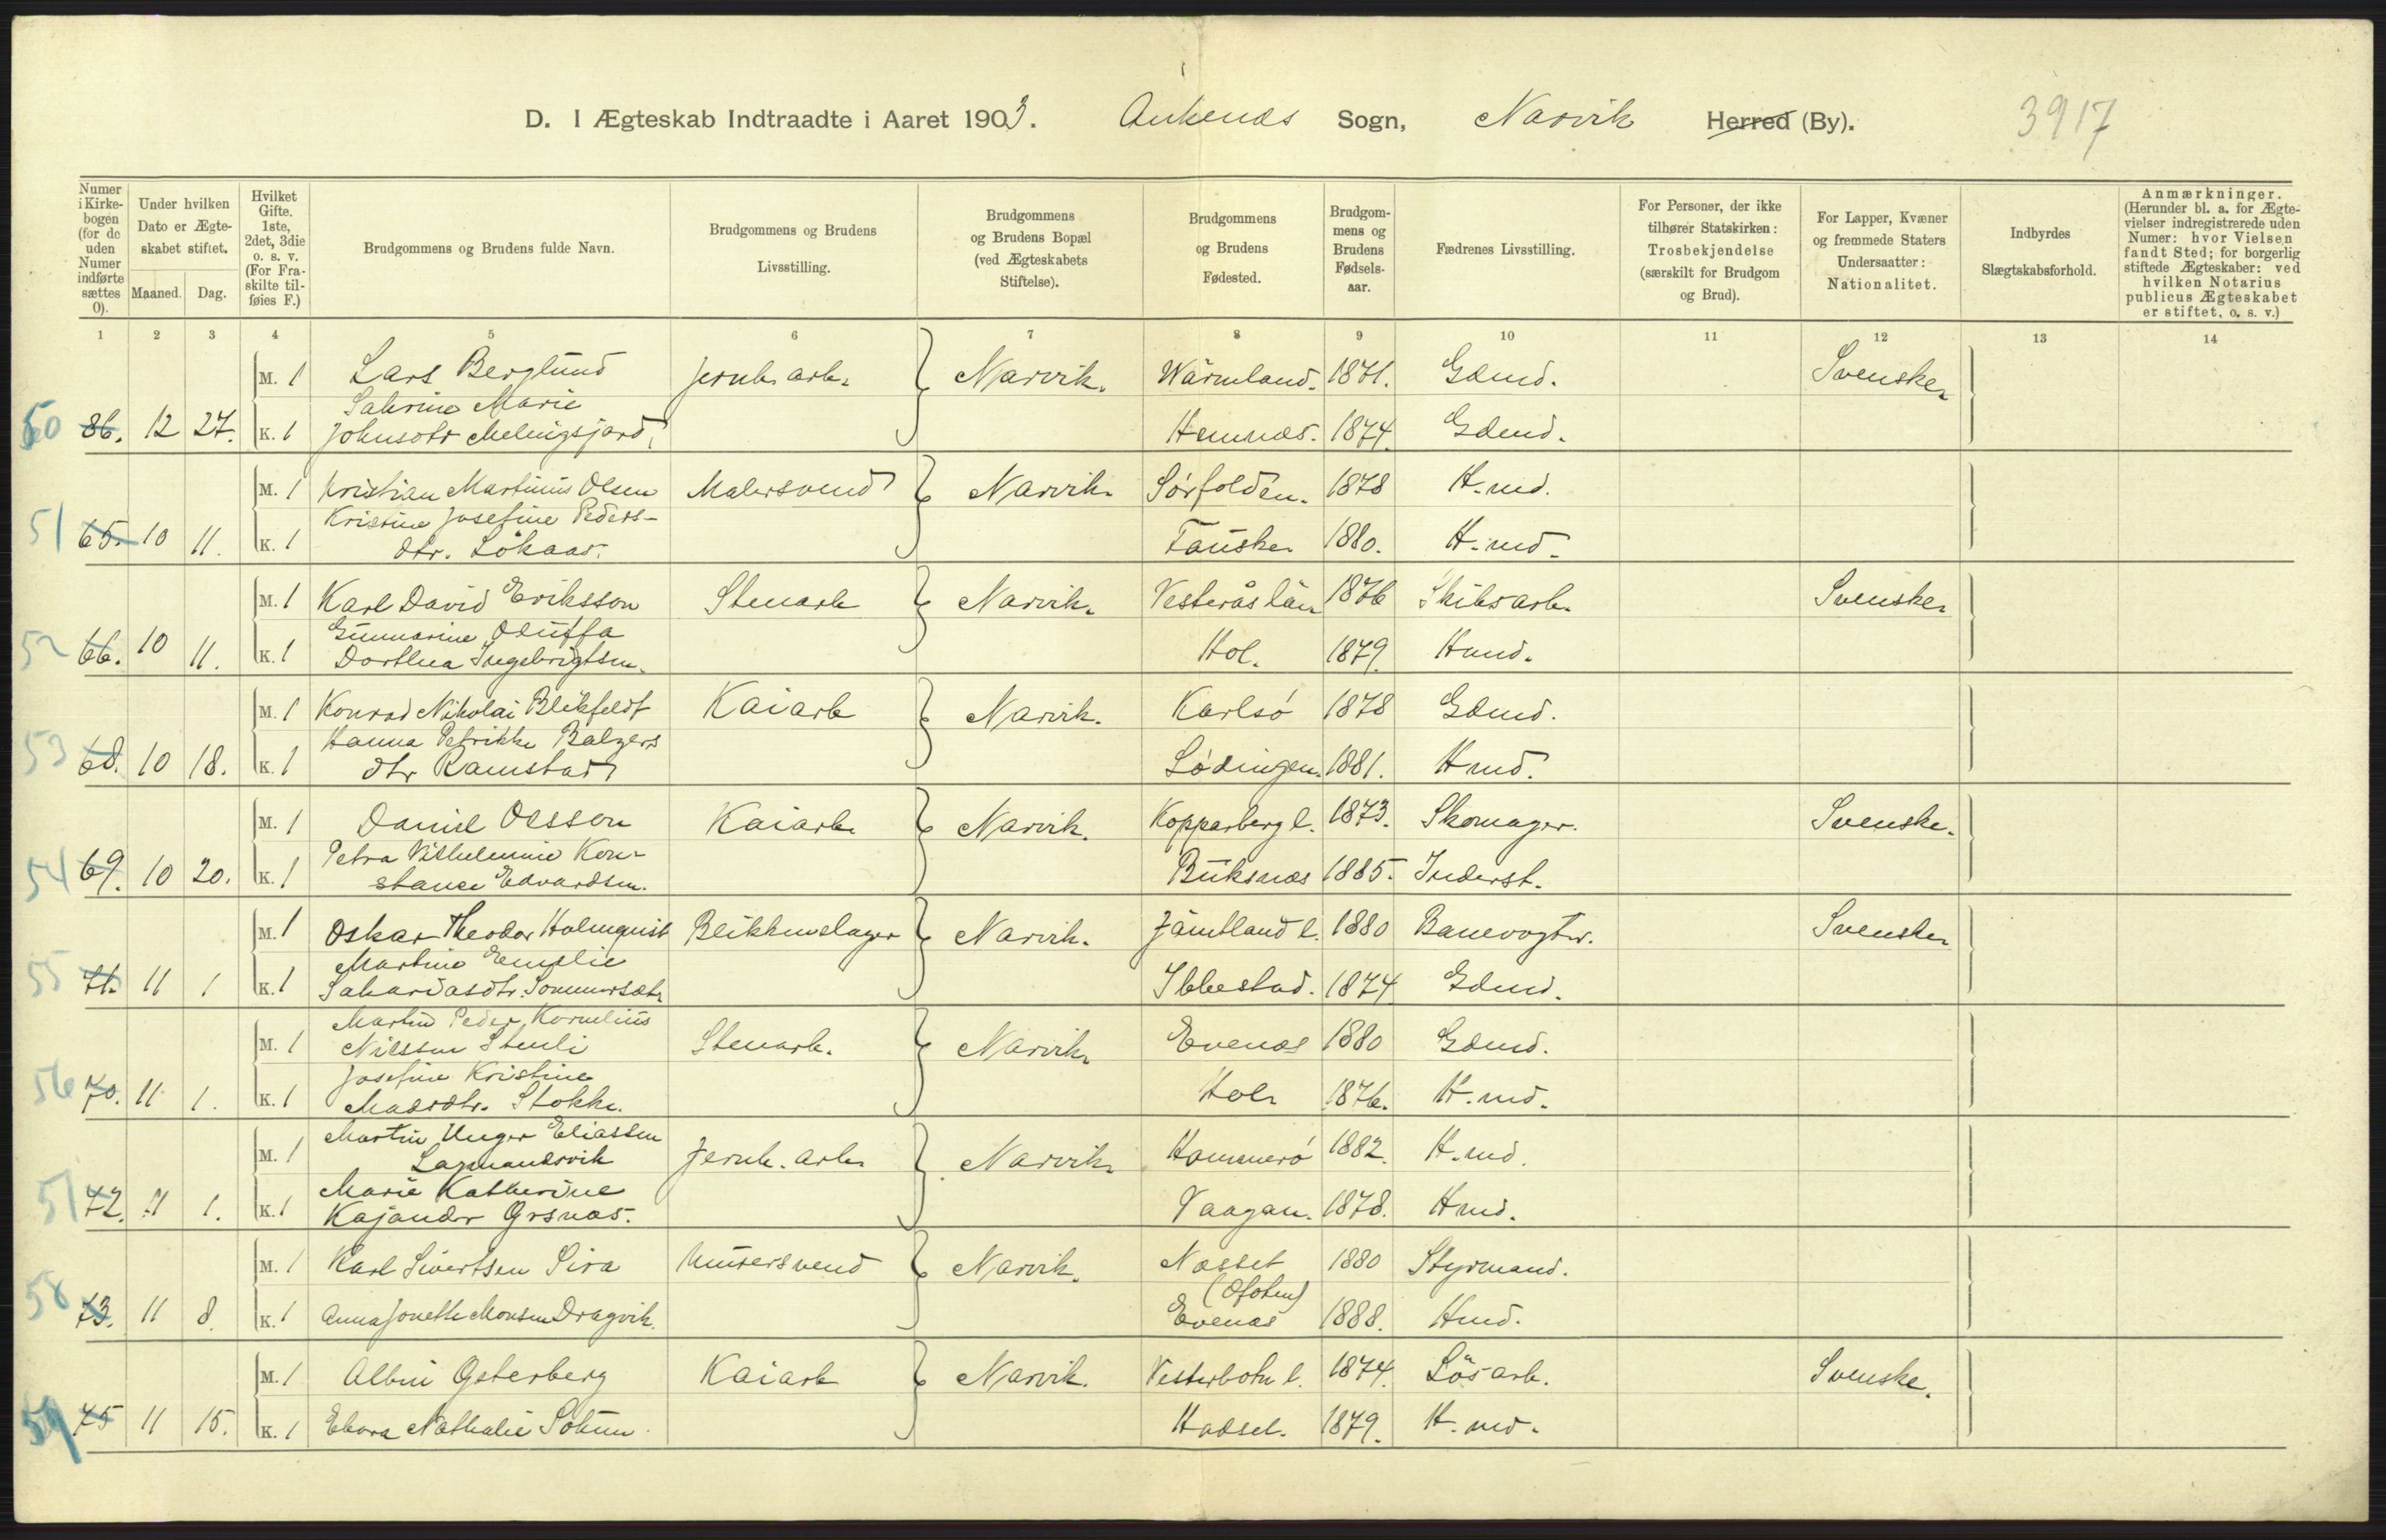 D. I Ægteskab Indtraadte i Aaret 1903. Ankenæs Sogn, Narvik Herred (By). 3917
Numer i Kirkebogen (for de uden Numer indførte sættes 0).
Under hvilken Dato er Ægteskabet stiftet. Maaned. Dag.
Hvilket Gifte. 1ste, 2det, 3die o. s. v. (For Fraskilte tilføies F.)
Brudgommens og Brudens fulde Navn.
Brudgommens og Brudens Livsstilling.
Brudgommens og Brudens Bopæl (ved Ægteskabets Stiftelse).
Brudgommens og Brudens Fødested.
Brudgommens og Brudens Fødselsaar.
Fædrenes Livsstilling.
For Personer, der ikke tilhører Statskirken: Trosbekjendelse (særskilt for Brudgom og Brud).
For Lapper, Kvæner og fremmede Staters Undersaatter: Nationalitet.
Indbyrdes Slægtskabsforhold.
Anmærkninger. (Herunder bl. a. for Ægtevielser indregistrerede uden Numer: hvor Vielsen fandt Sted; for borgerlig stiftede Ægteskaber: ved hvilken Notarius publicus Ægteskabet er stiftet, o. s. v.)
1 2 3 4 5 6 7 8 9 10 11 12 13 14
M. 1 Lars Berglund Jernb. arb. Narvik. Wärmland. 1871. Gdmd. Svenske.
50 86. 12 27. K. 1 Sabrine Marie Johnsdtr Hemnes. 1874. Gdmd.
M. 1 Kristian Martinius Olsen Malersvend Narvik. Sørfolden. 1878 H.md.
51 65. 10 11. K. 1 Kristine Josefine Pedersdtr. Løkaas. Fauske. 1880. H.md.
M. 1 Karl David Eriksson Stenarb Narvik. Vesterås län 1876 Skibsarb. Svenske.
52 66. 10 11. K. 1 Gunnarine Dorthea Ingebrigtsen. Hol. 1879. Hmd.
M. 1 Konrad Nikolai Blikfeldt Kaiarb Narvik. Karlsø 1878 Gdmd.
53 68. 10 18. K. 1 Hanna Petrikke Balzersdtr Ramstad Lødingen. 1881. Hmd.
M. 1 Daniel Olsson Kaiarb. Narvik. Kopparberg l. 1873. Skomager. Svenske.
54 69. 10 20. K. 1 Petra Vilhelmine Konstance Edvardsen. Buksnæs 1885. Inderst.
M. 1 Oskar Theodor Holmquist Blikkenslager Narvik. Jämtland l. 1880 Banevogter. Svenske.
55 71. 11 1 K. 1 Martine Emelie Sakariasdtr. Sommersæt. Ibbestad. 1874 Gdmd.
M. 1 Martin Peder Kornelius Nilssen Stenli Stenarb. Narvik. Evenæs 1880 Gdmd.
56 70. 11 1. K. 1 Josefine Kristine Madsdtr. Stokke. Hol. 1876. H.md.
M. 1 Martin Unger Eliassen Lagmandsvik Jernb. arb. Narvik. Hammerø 1882. H.md.
57 72. 11 1. K. 1 Marie Katherine Kajander Vaagan. 1878. Hmd.
M. 1 Karl Sivertsen Sira Murersvend Narvik. Nesset 1880 Styrmand.
58 73. 11 8. K. 1 Anna Jonette Monsen Dragvik. (Ofoten) Evenæs 1888. Hmd.
M. 1 Albin Østerberg Kaiarb Narvik. Vesterbotn l. 1874. Løsarb. Svenske.
59 75 11 15. K. 1 Nathalie Hadsel. 1879. H.md.